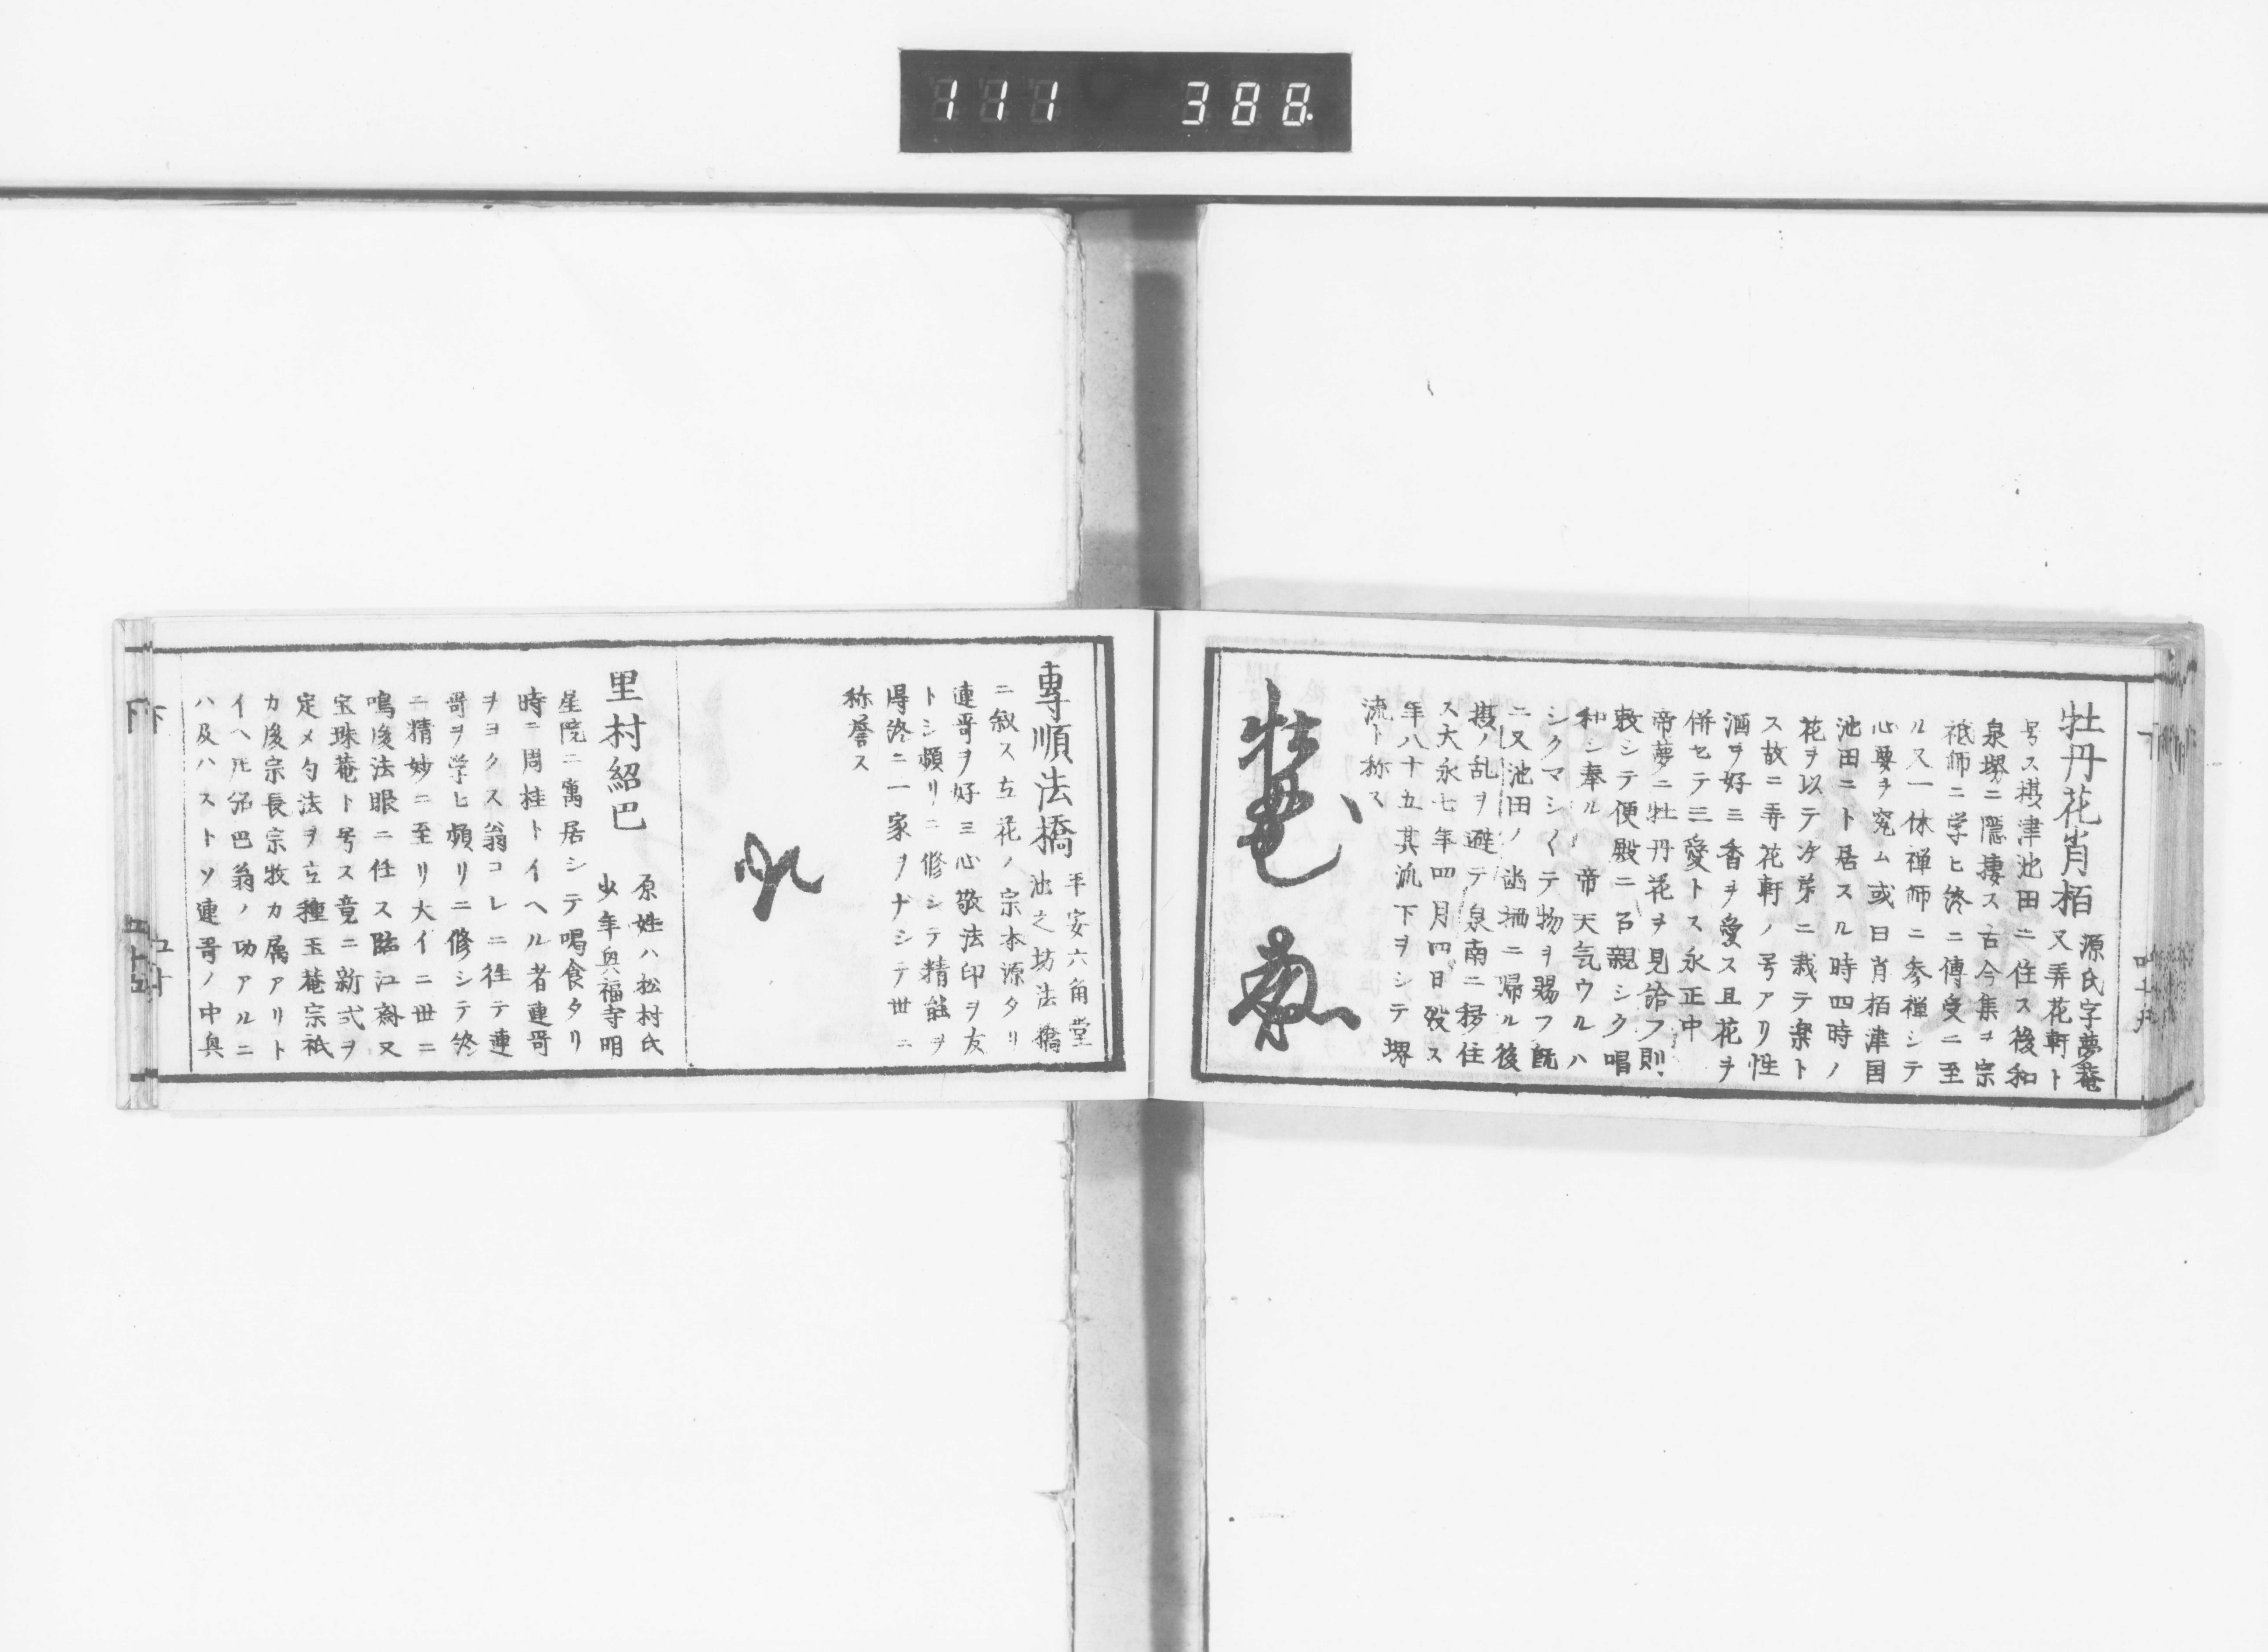 111 388
牡丹花肖栢 源氏字夢菴
又弄花軒ト
号ス摂津池田ニ住ス後和
泉堺ニ隠棲ス古今集ヲ宗
祇師ニ学ヒ終ニ傳受ニ至
ル又一休禅師ニ参禅シテ
心要ヲ究ム或日肖栢津国
池田ニト居スル時四時ノ
花ヲ以テ次第ニ栽テ楽ト
ス故ニ弄花軒ノ号アリ性
酒ヲ好ミ香ヲ愛ス且花ヲ
併セテ三愛トス永正中
帝夢ニ牡丹花ヲ見給フ則
敕シテ便殿ニ召親シク唱
和シ奉ル 帝天気ウルハ
シクマシ〱テ物ヲ賜フ既
ニ又池田ノ幽栖ニ帰ル後
摂ノ乱ヲ避テ泉南ニ移住
ス大永七年四月四日歿ス
年八十五其流下ヲシテ堺
流ト称ス
專順法橋 平安六角堂
池之坊法橋
ニ叙ス立花ノ宗本源タリ
連哥ヲ好ミ心敬法印ヲ友
トシ頻リニ修シテ精能ヲ
得終ニ一家ヲナシテ世ニ
称誉ス
里村紹巴 原姓ハ松村氏
少年興福寺明
星院ニ寓居シテ喝食タリ
時ニ周桂トイヘル者連哥
ヲヨクス翁コレニ従テ連
哥ヲ学ヒ頻リニ修シテ終
ニ精妙ニ至リ大イニ世ニ
鳴後法眼ニ任ス臨江斎又
宝珠菴ト号ス竟ニ新式ヲ
定メ勺法ヲ立種玉菴宗祇
カ後宗長宗牧カ属アリト
イヘ𪜈紹巴翁ノ功アルニ
ハ及ハストソ連哥ノ中興
下